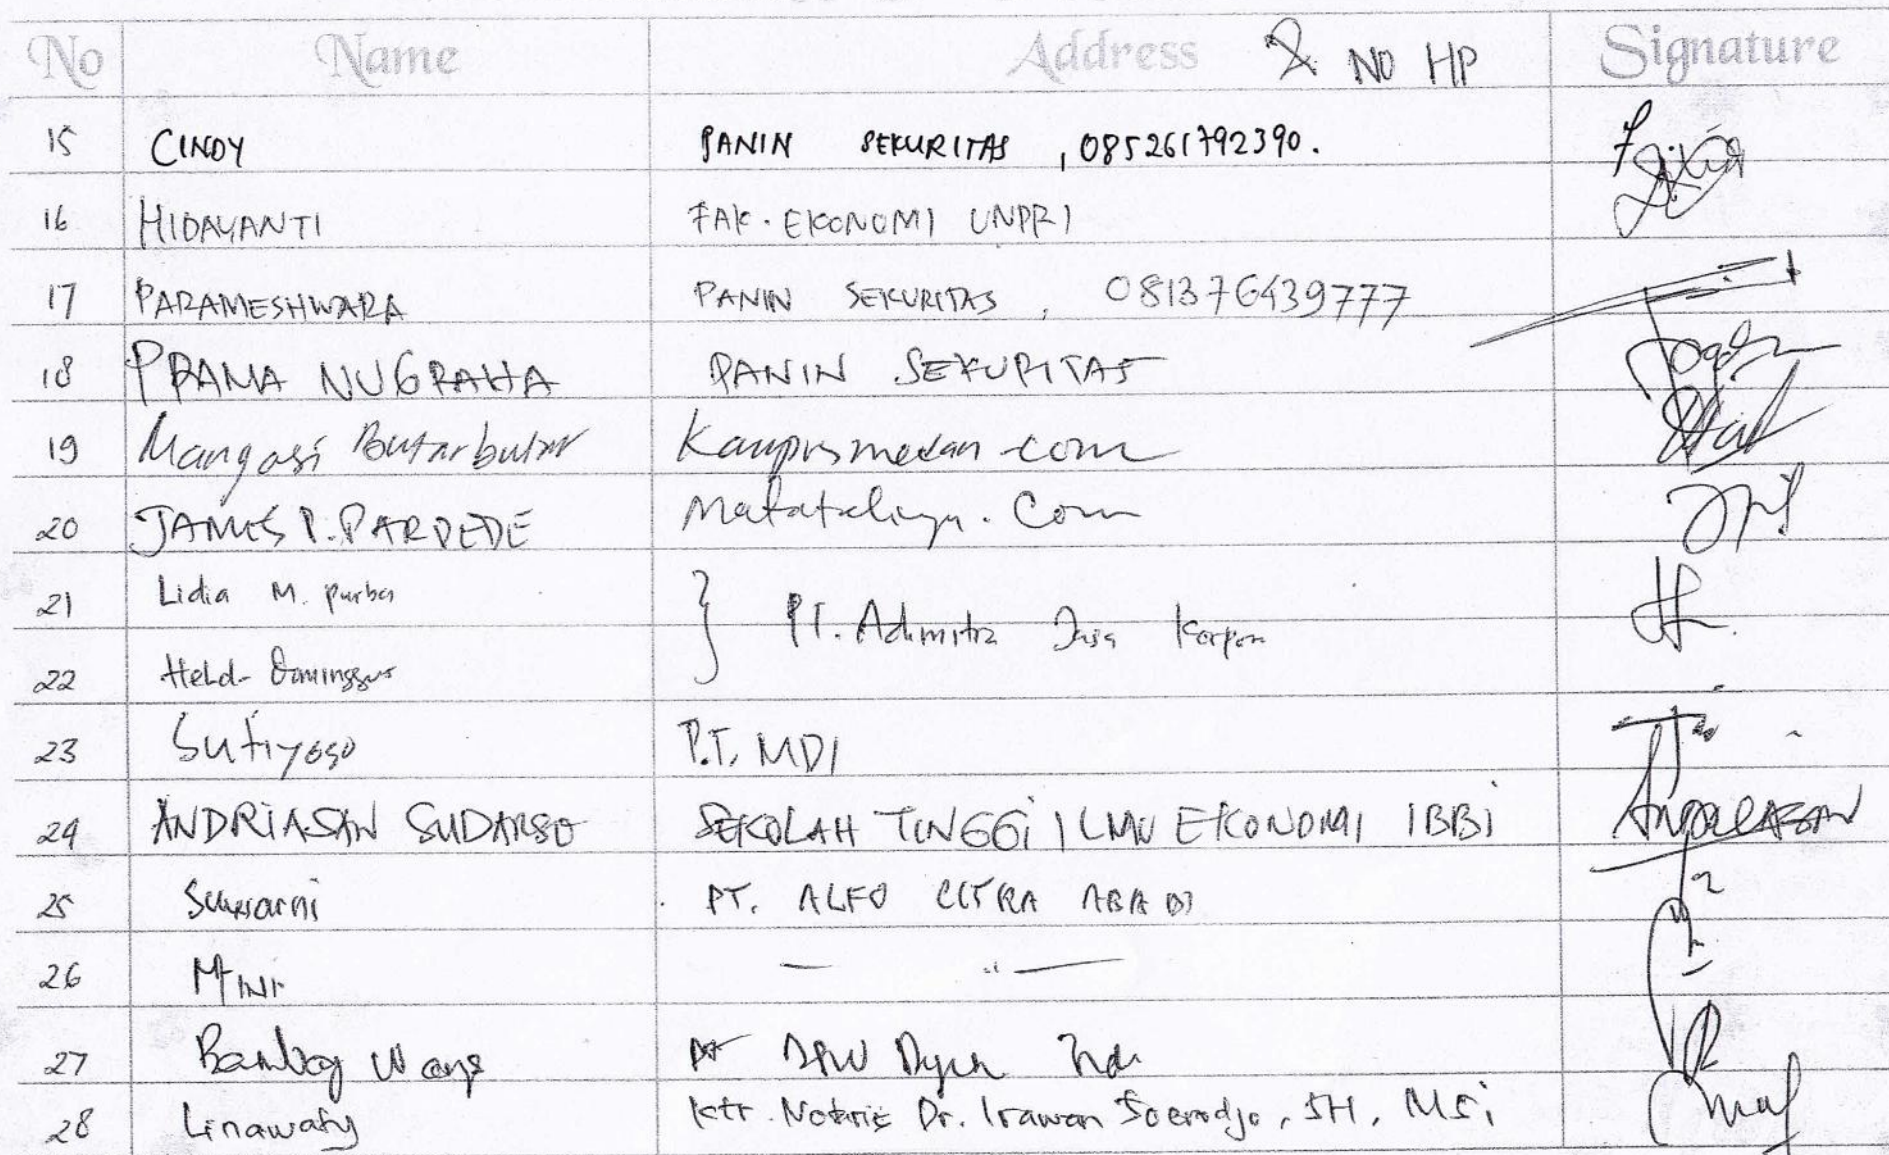 No Name Address & NO HP Signature
15 CINDY PANIN SEKURITAS , 085261792390.
16 HIDAYANTI FAK. EKONOMI UNPRI
17 PARAMESHWARA PANIN SEKURITAS , 081376439777
18 PRAMA NUGRAHA PANIN SEKURITAS
19 Mangasi Butarbutar Kampusmedan.com
20 JAMES P. PARDEDE Matatelinga.Com
21 Lidia M. Purba PT. Adimitra Jasa Korpora
22
23 Sutiyoso P.T. MDI
24 ANDRIASAN SUDARSO SEKOLAH TINGGI ILMU EKONOMI IBBI
25 PT. ALFO CITRA ABADI
26 — " —
27 Bambang
28 Linawaty Ktr. Notaris Dr. Irawan Soerodjo, SH, MSi